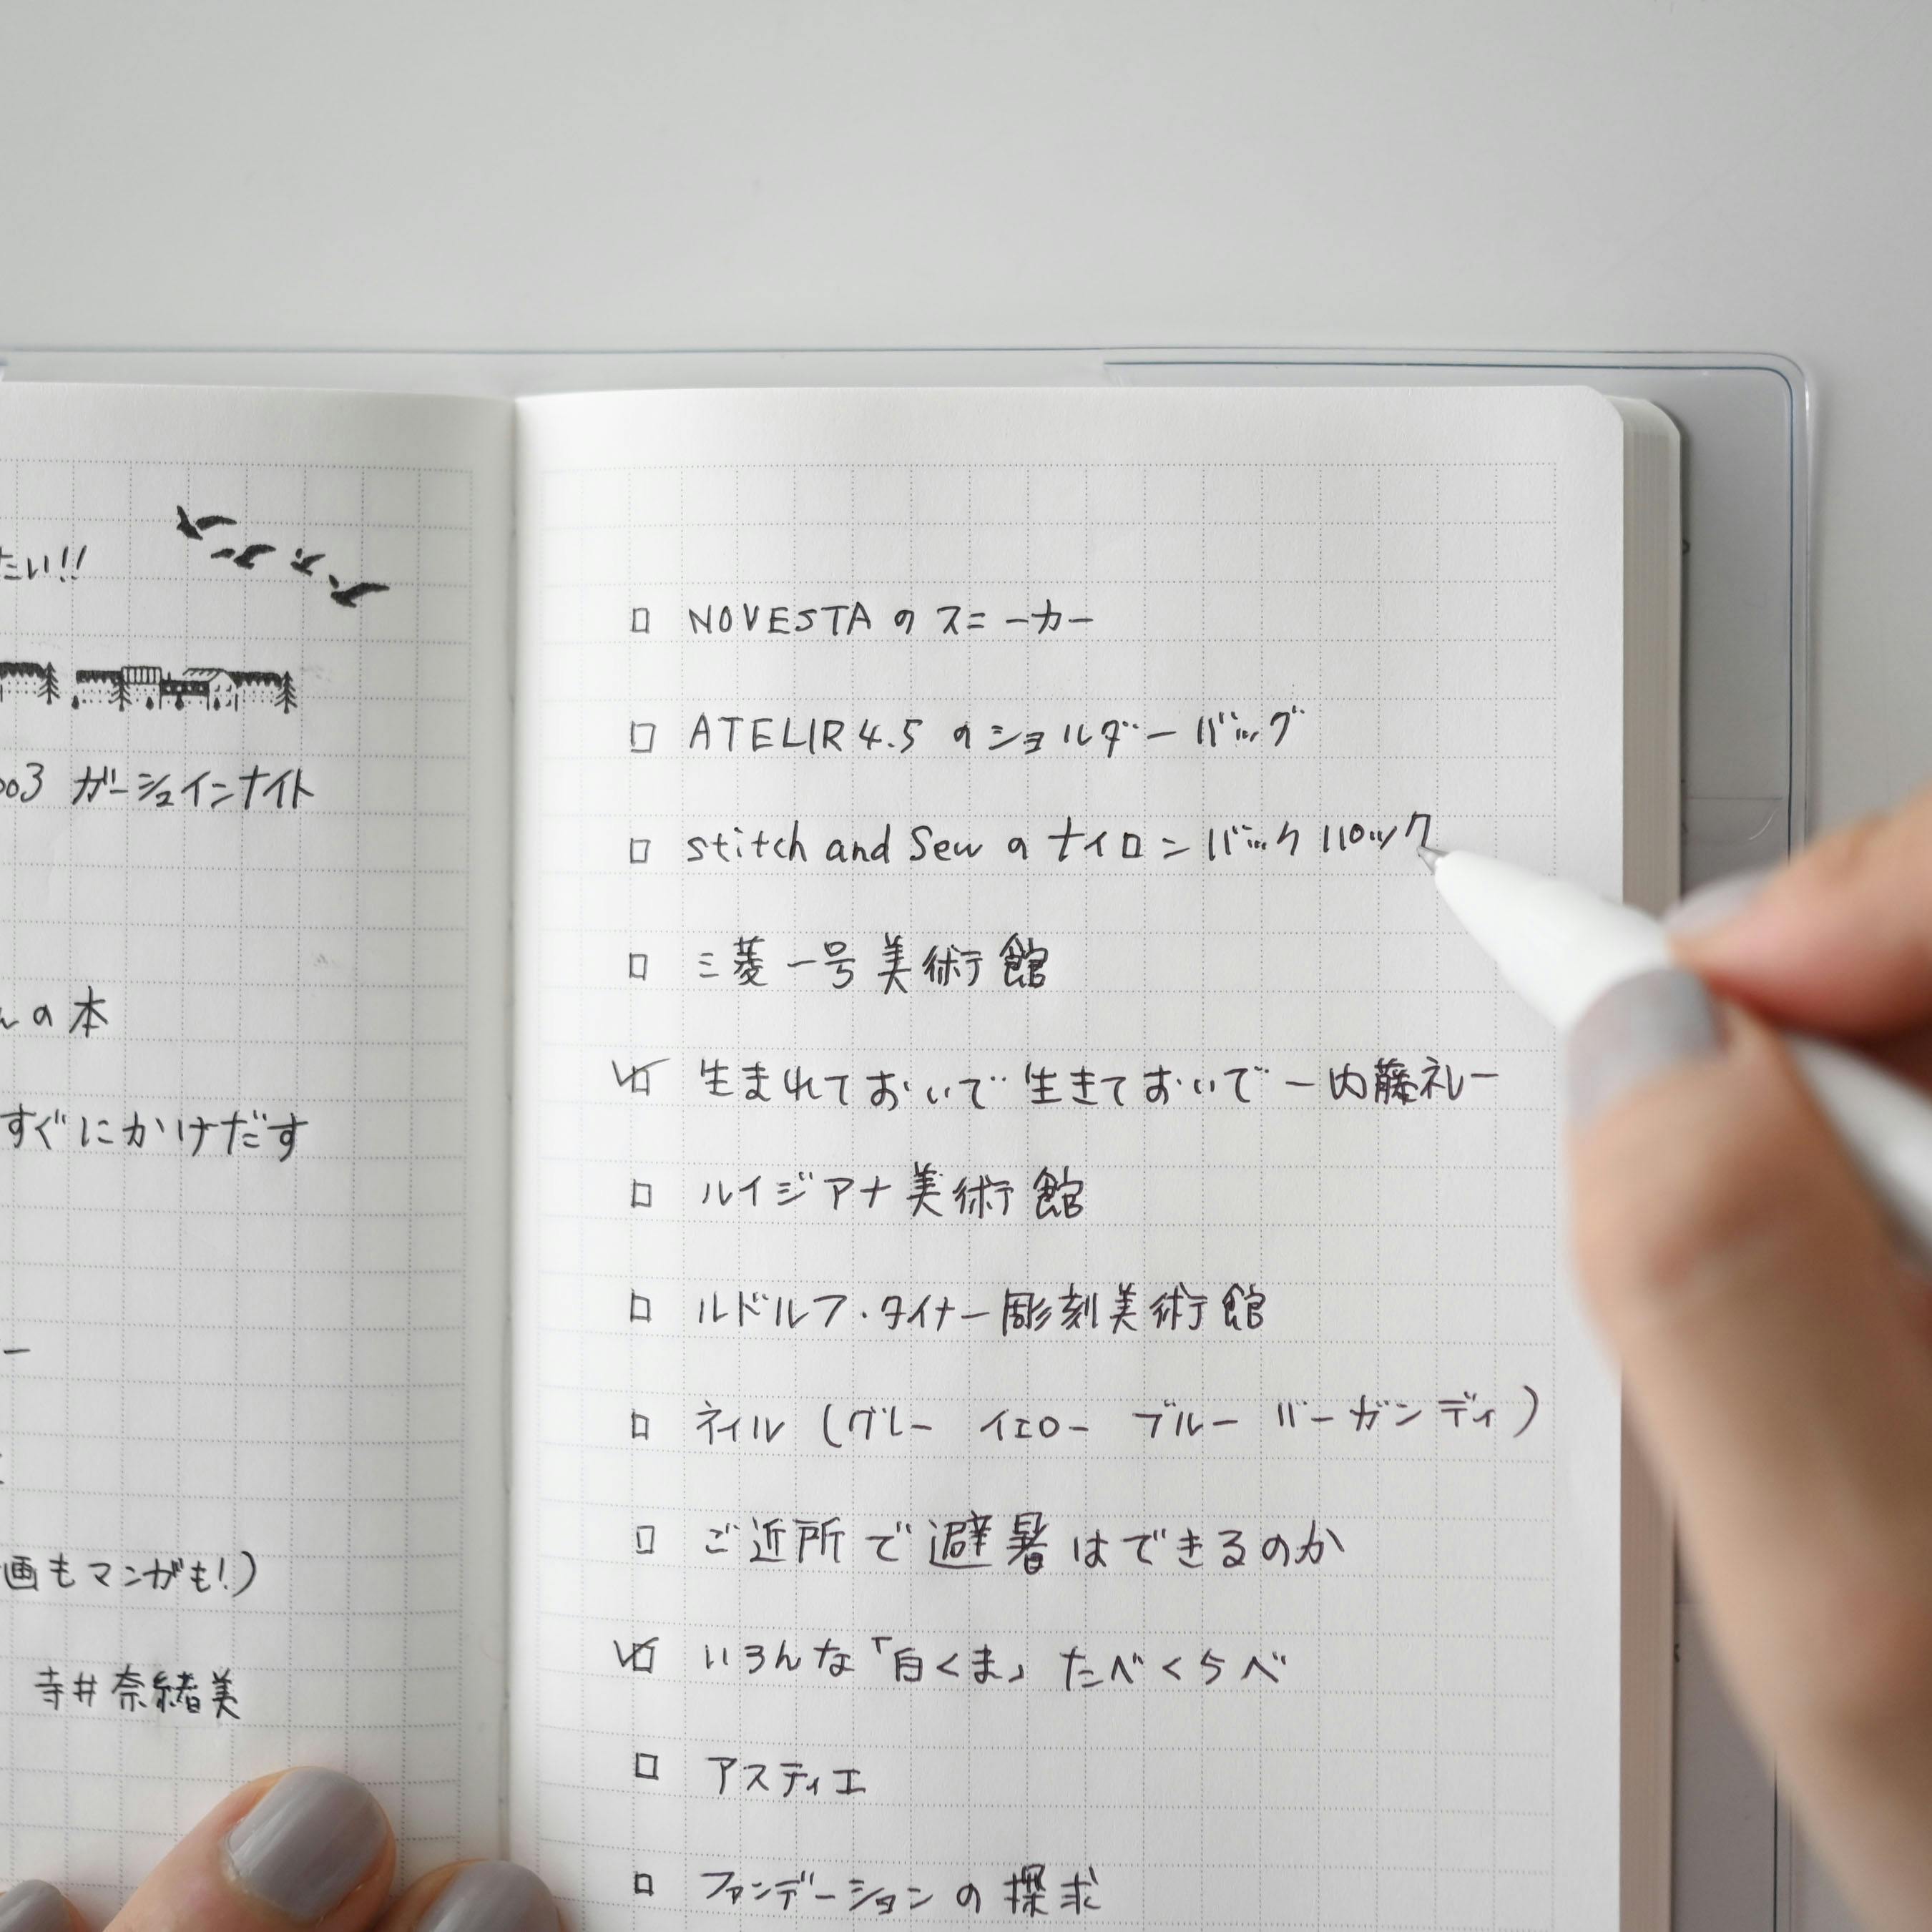 たい!!
003 ガーシュインナイト
んの本
すぐにかけだす
ー
画もマンガも!)
寺井奈緒美
□ NOVESTA の スニーカー
□ ATELIR 4.5 のショルダーバッグ
□ stitch and Sew の ナイロンバックパック
□ 三菱一号美術館
☑ 生まれておいで 生きておいで ー内藤礼ー
□ ルイジアナ美術館
□ ルドルフ・タイナー彫刻美術館
□ ネイル (グレー イエロー ブルー バーガンディ)
□ ご近所で避暑はできるのか
☑ いろんな「白くま」たべくらべ
□ アスティエ
□ ファンデーションの探求